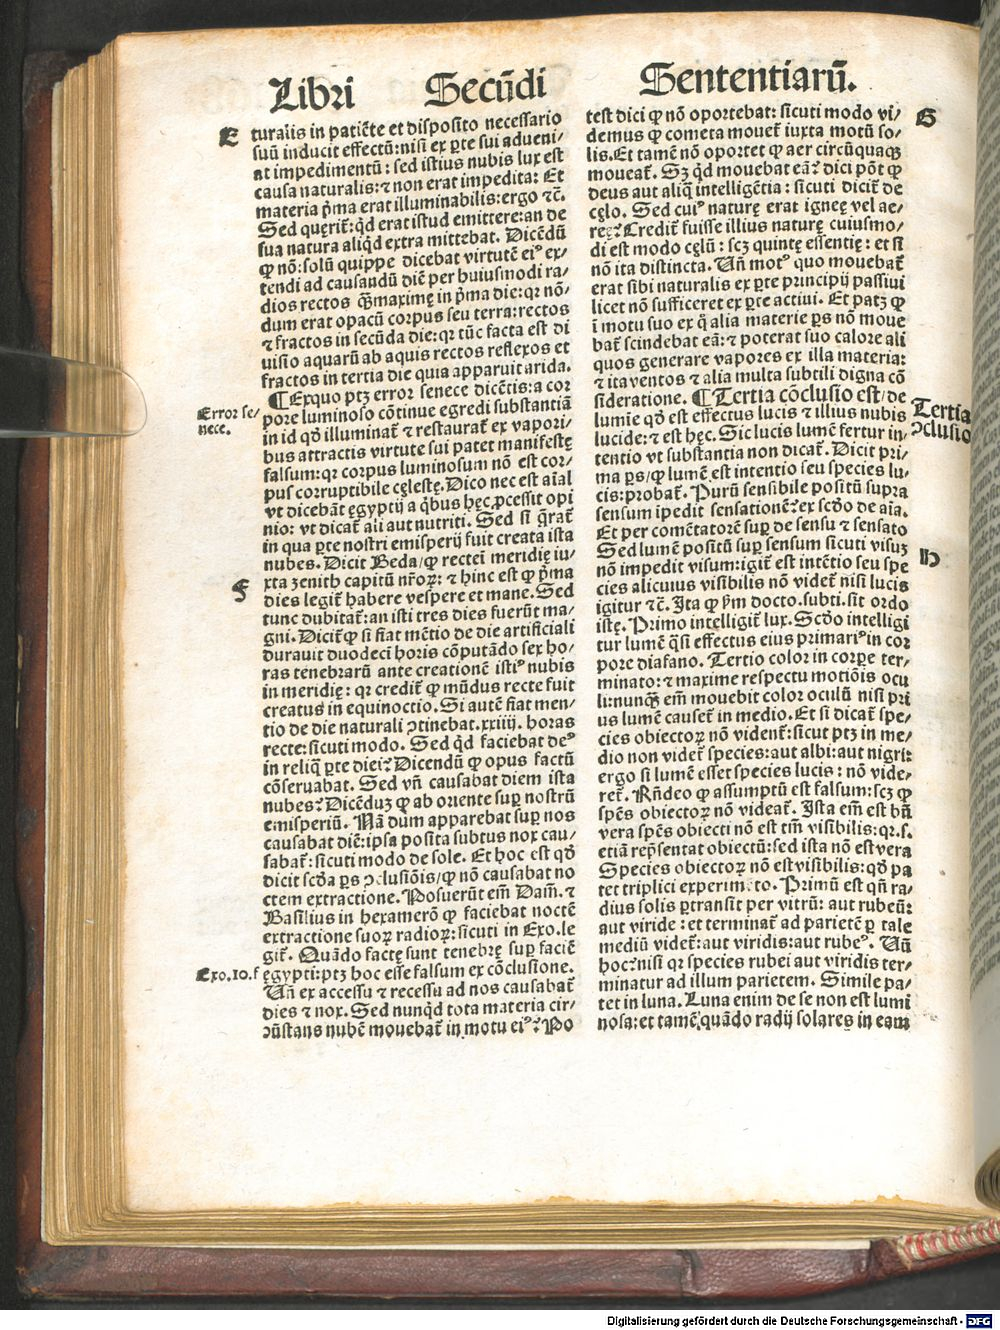 Libri Secūdi Sententiarū.
E
turalis in patiēte et disposito necessario
suū inducit effectū: nisi ex ꝑte sui adueni/
at impedimentū: sed istius nubis lux est
causa naturalis: ⁊ non erat impedita: Et
materia p̄ma erat illuminabilis: ergo ⁊c̄.
Sed querit̄: qd̓ erat istud emittere: an de
sua natura aliqd̓ extra mittebat. Dicēdū
ꝙ nō: solū quippe dicebat virtutē eiꝰ ex/
tendi ad causandū diē per huiusmodi ra/
dios rectos qm̄maximę in p̄ma die: qr nō/
dum erat opacū corpus seu terra: rectos
⁊ fractos in secūda die: qr tūc facta est di
uisio aquarū ab aquis rectos reflexos et
fractos in tertia die quia apparuit arida.
Error se/
nece.
¶ Exquo ptꝫ error senece dicētis: a cor
pore luminoso cōtinue egredi substantiā
in id qd̓ illuminat̄ ⁊ restaurat̄ ex vapori/
bus attractis virtute sui patet manifestę
falsum: qr corpus luminosum nō est cor/
pus corruptibile cęlestę. Dico nec est aīal
vt dicebāt ęgyptij a qb̓us hęc ꝓcessit opi
nio: vt dicat̄ ali aut nutriri. Sed si q̄rat̄
in qua ꝑte nostri emisperij fuit creata ista
nubes. Dicit Beda/ ꝙ rectei meridię iu/
F
xta zenith capitū nr̄oꝝ: ⁊ hinc est ꝙ p̄ma
dies legit̄ habere vespere et mane. Sed
tunc dubitat̄: an isti tres dies fuerūt ma/
gni. Dicit̄ ꝙ si fiat mētio de die artificiali
durauit duodeci horis cōputādo sex ho/
ras tenebrarū ante creationē istiꝰ nubis
in meridię: qr credit̄ ꝙ mūdus recte fuit
creatus in equinoctio. Si autē fiat men/
tio de die naturali ↄtinebat .xxiiij. horas
recte: sicuti modo. Sed qd̓ faciebat deꝰ
in reliq̄ ꝑte diei? Dicendū ꝙ opus factū
cōseruabat. Sed vn̄ causabat diem ista
nubes? Dicēduꝫ ꝙ ab oriente suꝑ nostrū
emisperiū. Nā dum apparebat suꝑ nos
causabat diē: ipsa posita subtus nox cau/
sabat̄: sicuti modo de sole. Et hoc est qd̓
dicit scd̓a ꝑs ↄclusiōis/ ꝙ nō causabat no
ctem extractione. Posuerūt em̄ Dam̄. ⁊
Basilius in hexamerō ꝙ faciebat noctē
extractione suoꝝ radioꝝ: sicuti in Exo. le
git̄. Quādo factę sunt tenebrę suꝑ faciē
Exo.10.f
ęgypti: ptꝫ hoc esse falsum ex cōclusione.
Vn̄ ex accessu ⁊ recessu ad nos causabat̄
dies ⁊ nox. Sed nunqd̓ tota materia cir/
cūstans nubē mouebat̄ in motu eiꝰ? Po
test dici ꝙ nō oportebat: sicuti modo vi/
G
demus ꝙ cometa mouet̄ iuxta motū so/
lis. Et tamē nō oportet ꝙ aer circūquaqꝫ
moueat̄. Sꝫ qd̓ mouebat eā? dici pōt ꝙ
deus aut aliq̄ intelligētia: sicuti dicit̄ de
cęlo. Sed cuiꝰ naturę erat igneę vel ae/
reę? Credit̄ fuisse illius naturę cuiusmo/
di est modo cęlū: scꝫ quintę essentię: et si
nō ita distincta. Vn̄ motꝰ quo mouebat̄
erat sibi naturalis ex ꝑte principij passiui
licet nō sufficeret ex ꝑte actiui. Et patꝫ ꝙ
ī motu suo ex q̄ alia materie ꝑs nō moue
bat̄ scindebat eā: ⁊ poterat suo calore ali
quos generare vapores ex illa materia:
⁊ ita ventos ⁊ alia multa subtili digna cō
sideratione. ¶ Tertia cōclusio est/ de
Tertia
ↄclusio
lumie qd̓ est effectus lucis ⁊ illius nubis
lucide: ⁊ est hęc. Sic lucis lumē fertur in/
tentio vt substantia non dicat̄. Dicit pri/
ma ꝑs/ ꝙ lumē est intentio seu species lu/
cis: probat̄. Purū sensibile positū supra
sensum īpedit sensationē: ex scd̓o de aīa.
Et per comētatorē suꝑ de sensu ⁊ sensato
Sed lumē positū suꝑ sensum sicuti visuꝫ
H
nō impedit visum: igit̄ est intētio seu spe
cies alicuius visibilis nō videt̄ nisi lucis
igitur ⁊c̄. Ita ꝙ ꝑm docto. subti. sit ordo
istę. Primo intelligit̄ lux. Scd̓o intelligi
tur lumē q̄si effectus eius primariꝰ in cor
pore diafano. Tertio color in corꝑe ter/
minato: ⁊ maxime respectu motiōis ocu
li: nunqꝫ em̄ mouebit color oculū nisi pri
us lumē causet̄ in medio. Et si dicat̄ spe/
cies obiectoꝝ nō vident̄: sicut ptꝫ in me/
dio non videt̄ species: aut albi: aut nigri:
ergo si lumē esset species lucis: nō vide/
ret̄. Rn̄deo ꝙ assumptū est falsum: scꝫ ꝙ
spēs obiectoꝝ nō videat̄. Ista em̄ est bn̄
vera spēs obiecti nō est tm̄ visibilis: qr. s.
etiā rep̄sentat obiectū: sed ista nō est vera
Species obiectoꝝ nō est visibilis: qd̓ pa
tet triplici experimēto. Primū est qn̄ ra/
dius solis ꝑtransit per vitrū: aut rubeū:
aut viride: et terminat̄ ad parietē ꝑ tale
mediū videt̄: aut viridis: aut rubeꝰ. Vn̄
hoc? nisi qr species rubei aut viridis ter/
minatur ad illum parietem. Simile pa/
tet in luna. Luna enim de se non est lumi
nosa: et tamē quādo radij solares in eam
Digitalisierung gefördert durch die Deutsche Forschungsgemeinschaft - DFG